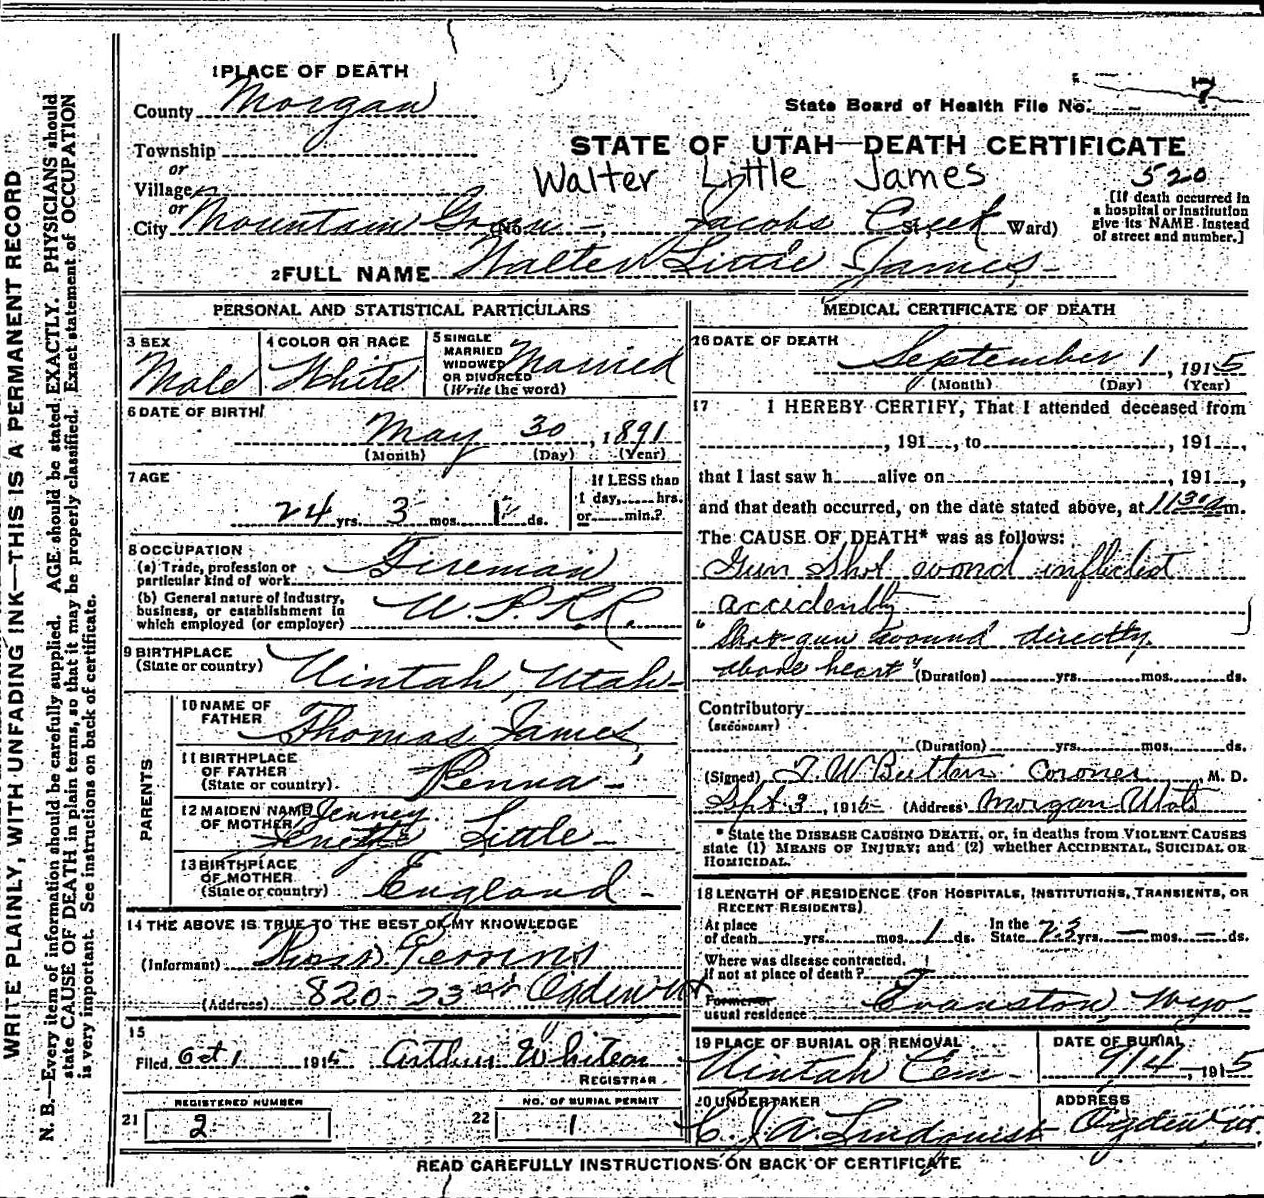 1 PLACE OF DEATH
County Morgan
State Board of Health File No. 7
Township
STATE OF UTAH—DEATH CERTIFICATE
or
Village
Walter Little James 520
or
City Mountain Green (No. —, Jacobs Creek St; Ward)
[If death occurred in
a hospital or institution
give its NAME instead
of street and number.]
2 FULL NAME Walter Little James
PERSONAL AND STATISTICAL PARTICULARS
3 SEX
Male
4 COLOR OR RACE
White
5 SINGLE
MARRIED
WIDOWED
OR DIVORCED
(Write the word)
Married
6 DATE OF BIRTH
May 30, 1891
(Month) (Day) (Year)
7 AGE
24 yrs. 3 mos. 1 ds.
If LESS than
1 day, hrs.
or min.?
8 OCCUPATION
(a) Trade, profession or
particular kind of work
Fireman
(b) General nature of industry,
business, or establishment in
which employed (or employer)
U.P.R.R.
9 BIRTHPLACE
(State or country)
Uintah, Utah
PARENTS
10 NAME OF
FATHER
Thomas James
11 BIRTHPLACE
OF FATHER
(State or country)
Penna
12 MAIDEN NAME
OF MOTHER
Jenney
Little
13 BIRTHPLACE
OF MOTHER
(State or country)
England
14 THE ABOVE IS TRUE TO THE BEST OF MY KNOWLEDGE
(Informant) Perrins
(Address) 820-23rd St Ogden Ut
15
Filed Oct 1 1915 Arthur Whitear
REGISTRAR
21 REGISTERED NUMBER
2
22 NO. OF BURIAL PERMIT
1
MEDICAL CERTIFICATE OF DEATH
16 DATE OF DEATH
September 1, 1915
(Month) (Day) (Year)
17 I HEREBY CERTIFY, That I attended deceased from
, 191 , to , 191 ,
that I last saw h alive on , 191 ,
and that death occurred, on the date stated above, at 1130 am.
The CAUSE OF DEATH* was as follows:
Gun Shot wond inflictet
accidently
"Shot-gun wound directly
above heart" (Duration) yrs. mos. ds.
Contributory
(SECONDARY)
(Duration) yrs. mos. ds.
(Signed) T. W. Butters Coroner, M. D.
Sept 3, 1915 (Address) Morgan Utah
* State the DISEASE CAUSING DEATH, or, in deaths from VIOLENT CAUSES
state (1) MEANS OF INJURY; and (2) whether ACCIDENTAL, SUICIDAL OR
HOMICIDAL.
18 LENGTH OF RESIDENCE (FOR HOSPITALS, INSTITUTIONS, TRANSIENTS, OR
RECENT RESIDENTS).
At place
of death yrs. mos. 1 ds. In the
State 23 yrs. — mos. — ds.
Where was disease contracted,
if not at place of death?
Former or
usual residence Evanston, Wyo
19 PLACE OF BURIAL OR REMOVAL
Uintah Cem
DATE OF BURIAL
9/4, 1915
20 UNDERTAKER
C. J. A. Lindquist
ADDRESS
Ogden Ut.
READ CAREFULLY INSTRUCTIONS ON BACK OF CERTIFICATE
WRITE PLAINLY, WITH UNFADING INK—THIS IS A PERMANENT RECORD
N. B.—Every item of information should be carefully supplied. AGE should be stated EXACTLY. PHYSICIANS should
state CAUSE OF DEATH in plain terms, so that it may be properly classified. Exact statement of OCCUPATION
is very important. See instructions on back of certificate.